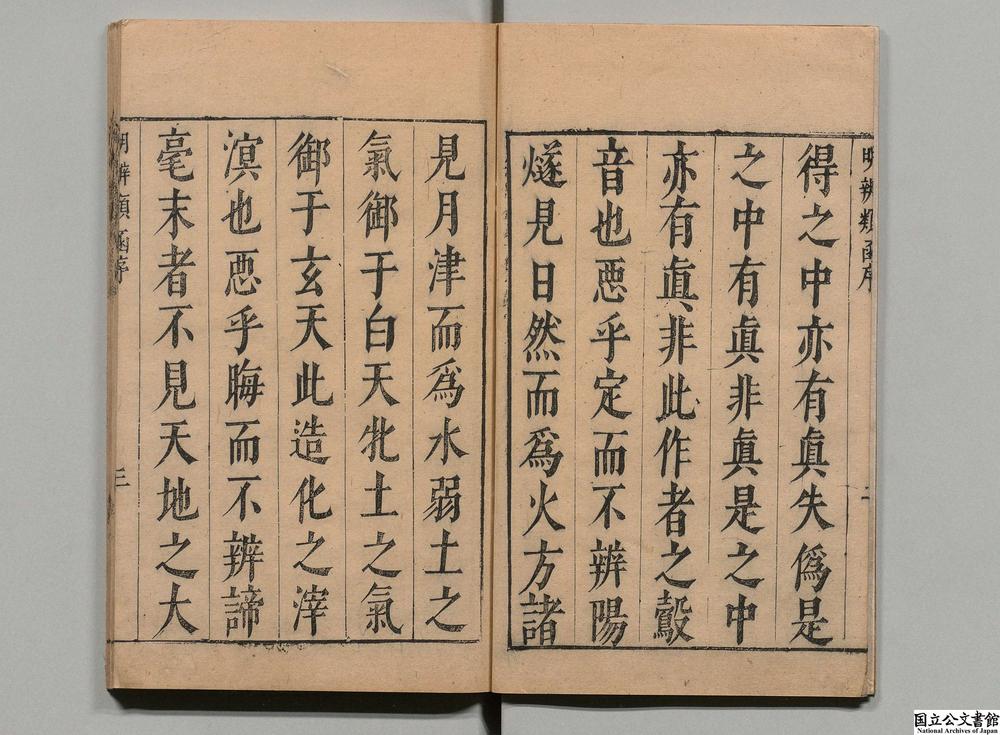 明辨類函序
二
得之中亦有眞失僞是
之中有眞非眞是之中
亦有眞非此作者之鷇
音也惡乎定而不辨陽
燧見日然而爲火方諸
見月津而爲水弱土之
氣御于白天牝土之氣
御于玄天此造化之滓
溟也惡乎晦而不辨諦
毫末者不見天地之大
明辨類函序
三
国立公文書館
National Archives of Japan